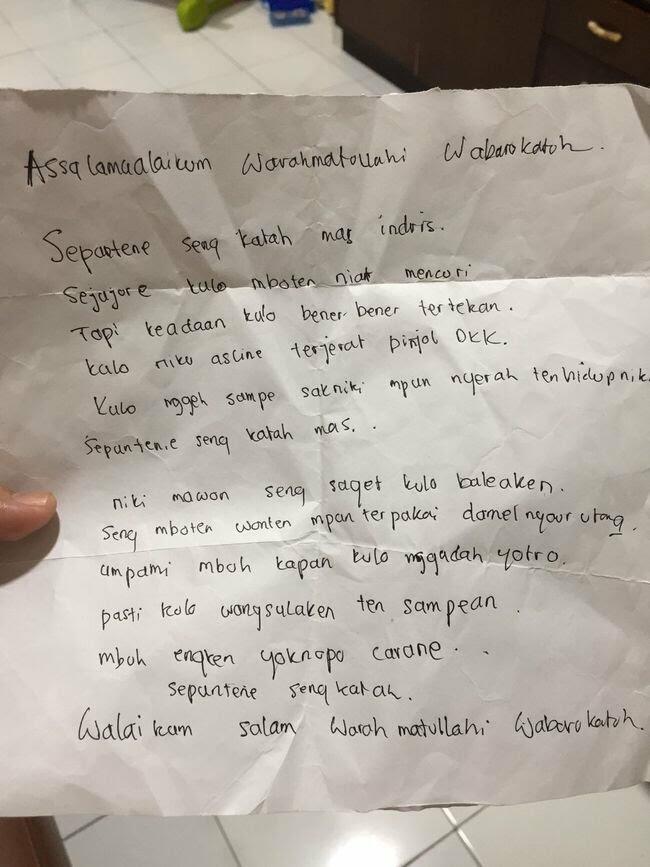 Assalamualaikum Warahmatullahi Wabarokatoh.
Sepantene seng katah mas indris.
Sejajore kulo mboten niat mencori
Tapi keadaan kulo bener-bener tertekan.
kalo niku asline terjerat pinjol DKK.
Kulo nggeh sampe sakniki mpun nyerah ten hidup nik
Sepunten.e seng katah mas..
niki mawon seng saget kulo baleaken.
Seng mboten wonten mpan terpakai damel nyour utang.
umpami mboh kapan kulo nggadah yotro.
pasti kulo wangsulaken ten sampean.
mboh engken yoknopo carane..
sepuntene seng katah.
Walaikum salam Warahmatullahi Wabarokatoh.